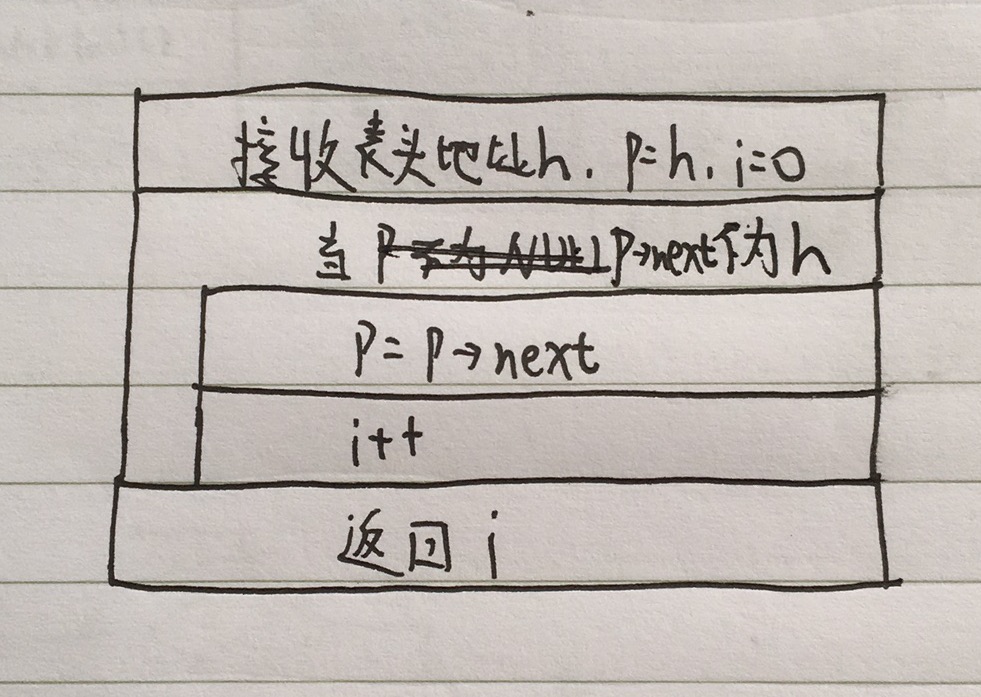 接收表头地址h. p=h. i=0
当 p不为NULL p→next不为h
p=p→next
i++
返回 i